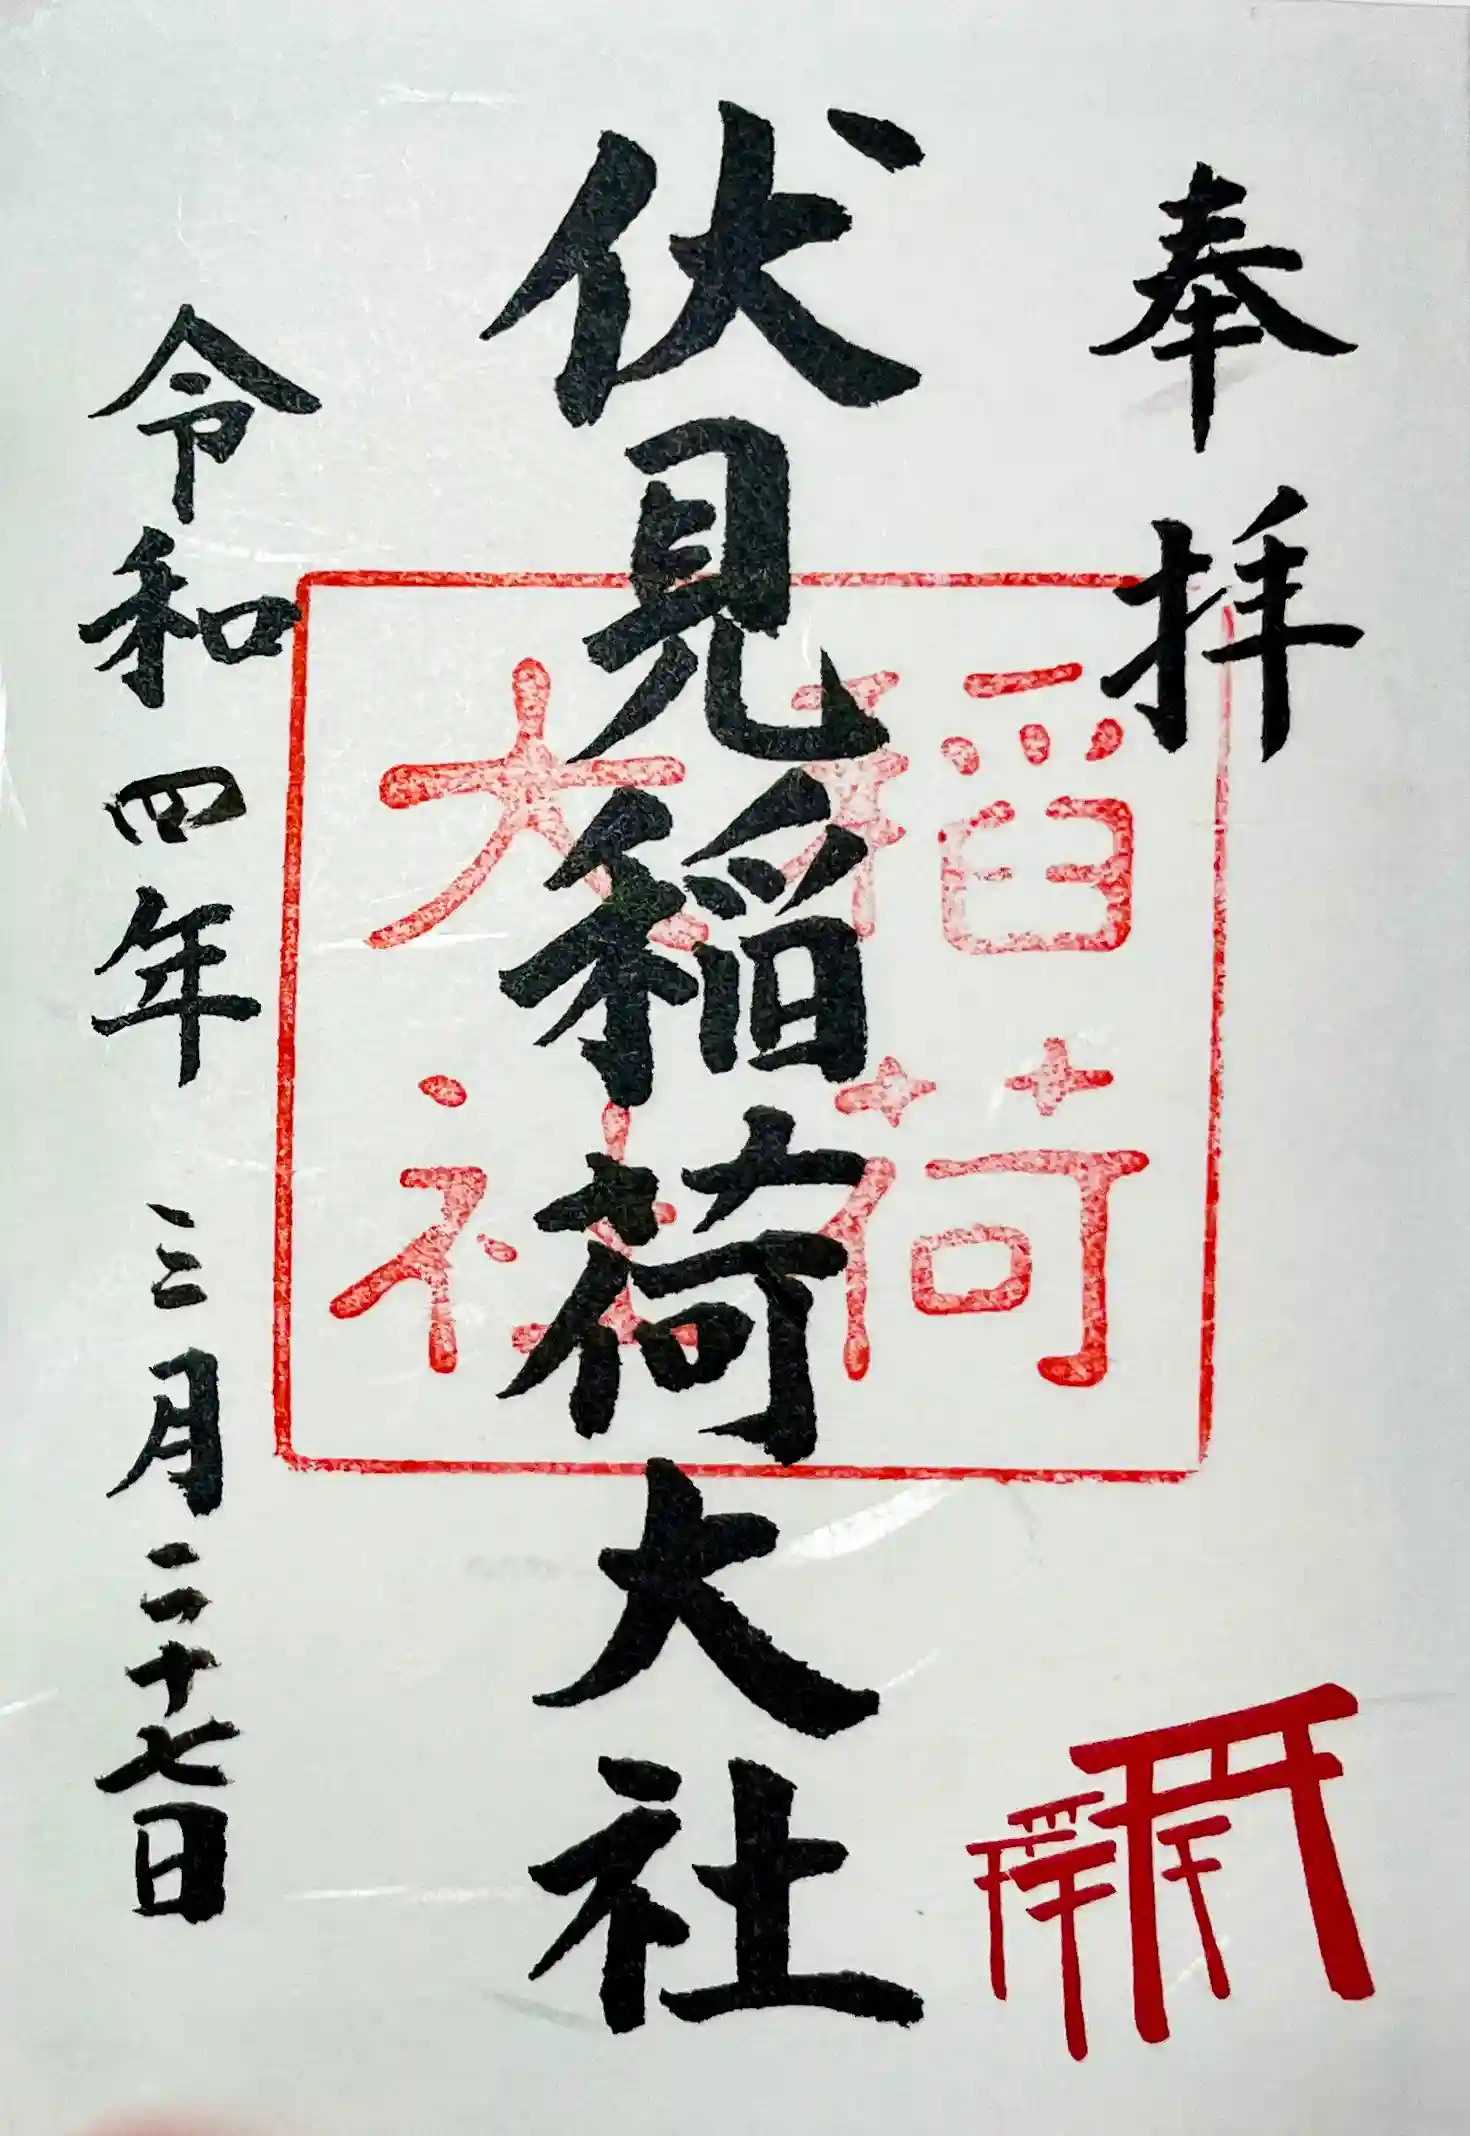 奉拝
伏見稲荷大社
令和四年三月二十七日
稲荷
大社